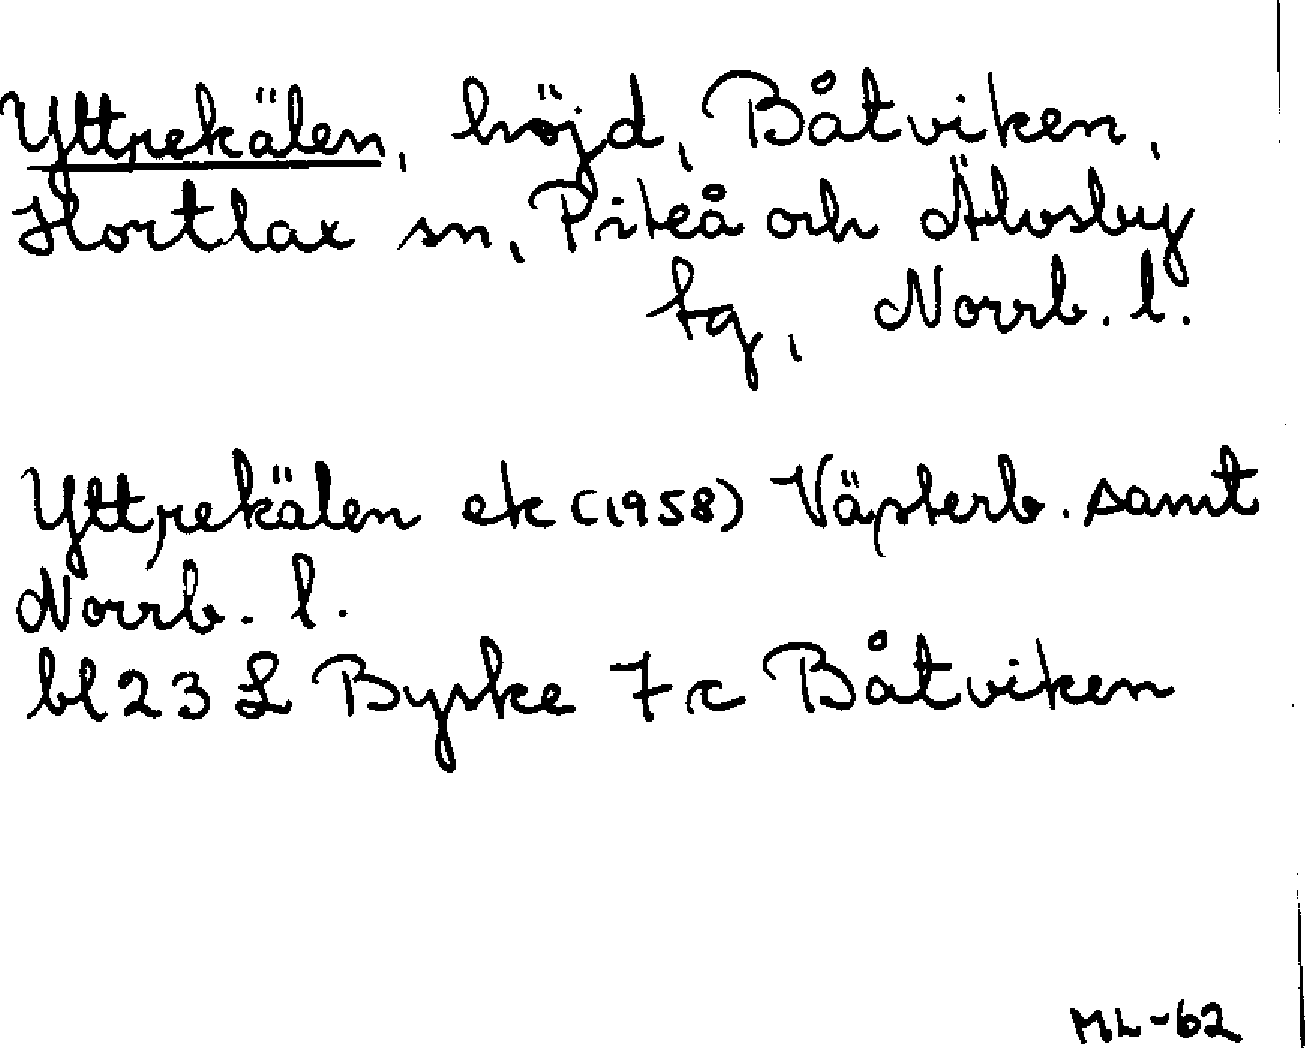 Yttrekälen, höjd, Båtviken,
Hortlax sn, Piteå och Älvsby
tg, Norrb. l.
Yttrekälen ek (1958) Västerb. samt
Norrb. l.
bl 23 L Byske 7 c Båtviken
ML-62